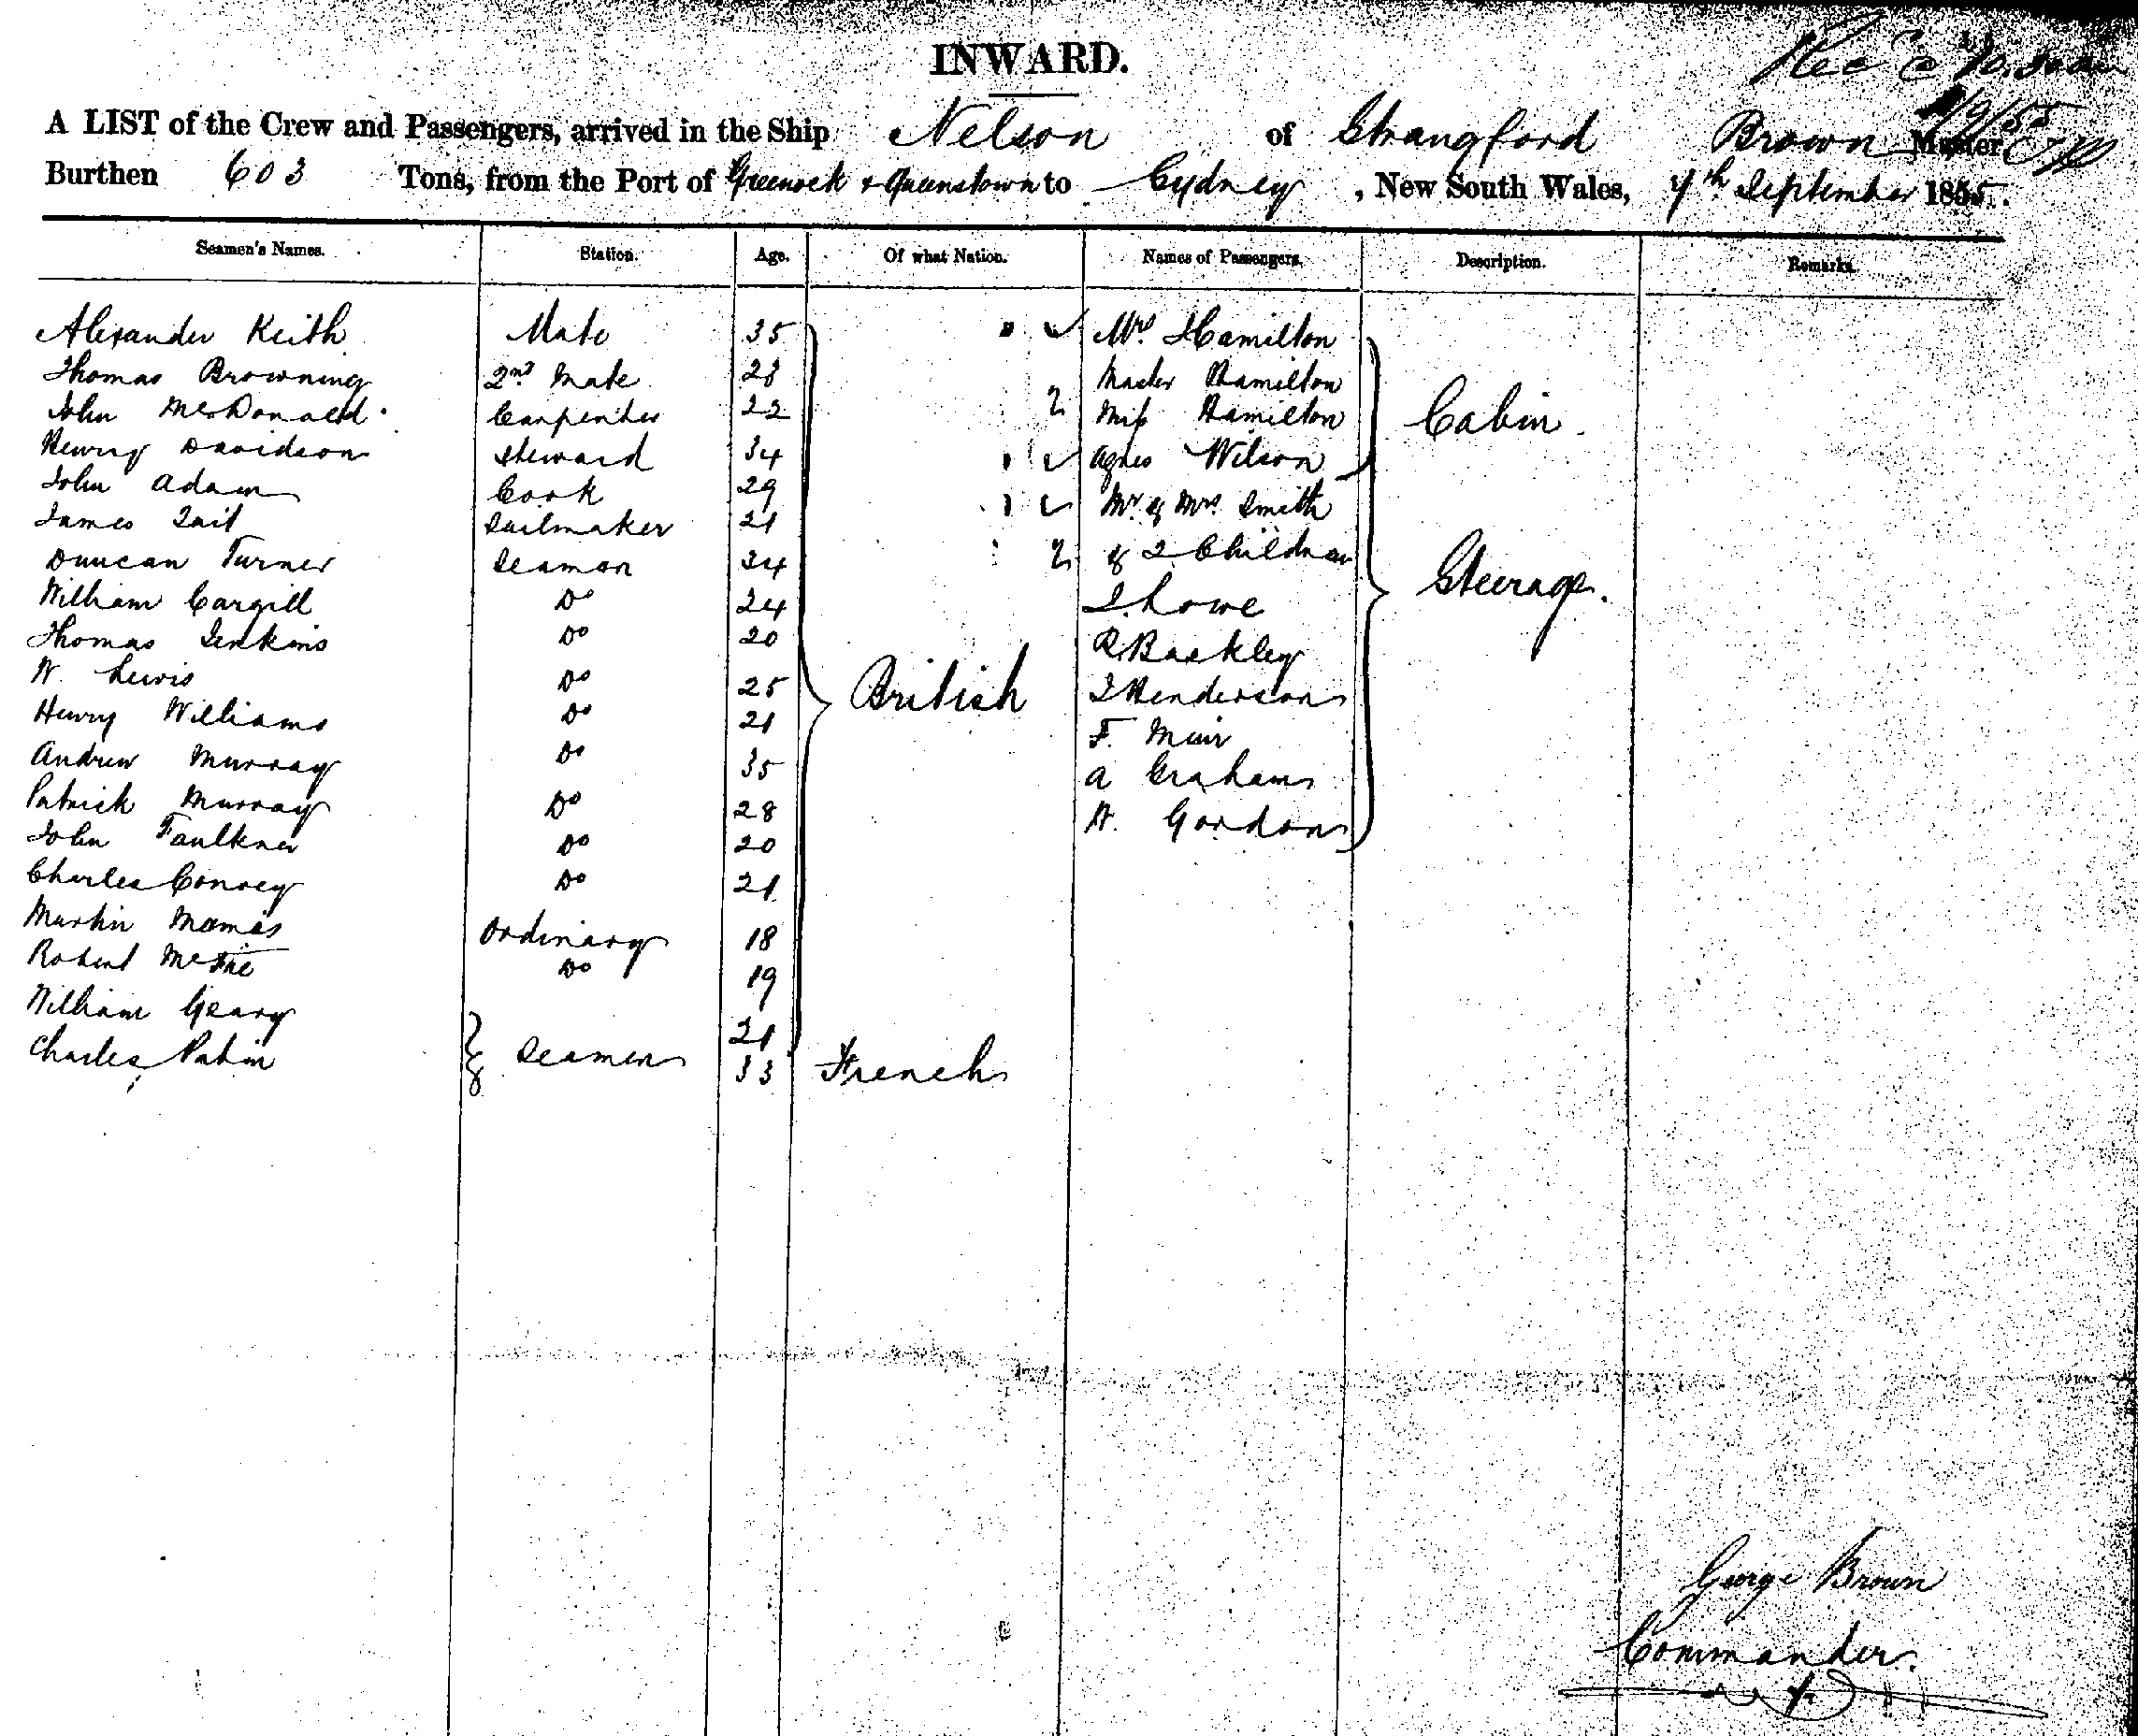 INWARD.
A LIST of the Crew and Passengers, arrived in the Ship Nelson of Strangford Brown Master
Burthen 603 Tons, from the Port of Greenock & Queenstown to Sydney, New South Wales, 7th September 1855.
Seamen's Names. Station. Age. Of what Nation. Names of Passengers. Description. Remarks.
Alexander Keith Mate 35 Mrs Hamilton
Thomas Browning 2nd Mate 28 Master Hamilton
John McDonald Carpenter 22 2 Miss Hamilton Cabin
Henry Davidson Steward 34 Agnes Wilson
John Adam Cook 29 Mr & Mrs Smith
James Tait Sailmaker 21
Duncan Turner Seaman 34 2 & 2 Children
William Cargill Do 24 Lowe Steerage.
Thomas Jenkins Do 20 R. Barkley
W. Lewis Do 25 British Henderson
Henry Williams Do 21 F. Muir
Andrew Murray Do 35 A Graham
Patrick Murray Do 28 W. Gordon
John Faulkner Do 20
Charles Conroy Do 21
Martin Ordinary 18
Robert McFie Do 19
William Geary 21
Charles Seamen 33 French
George Brown
Commander.